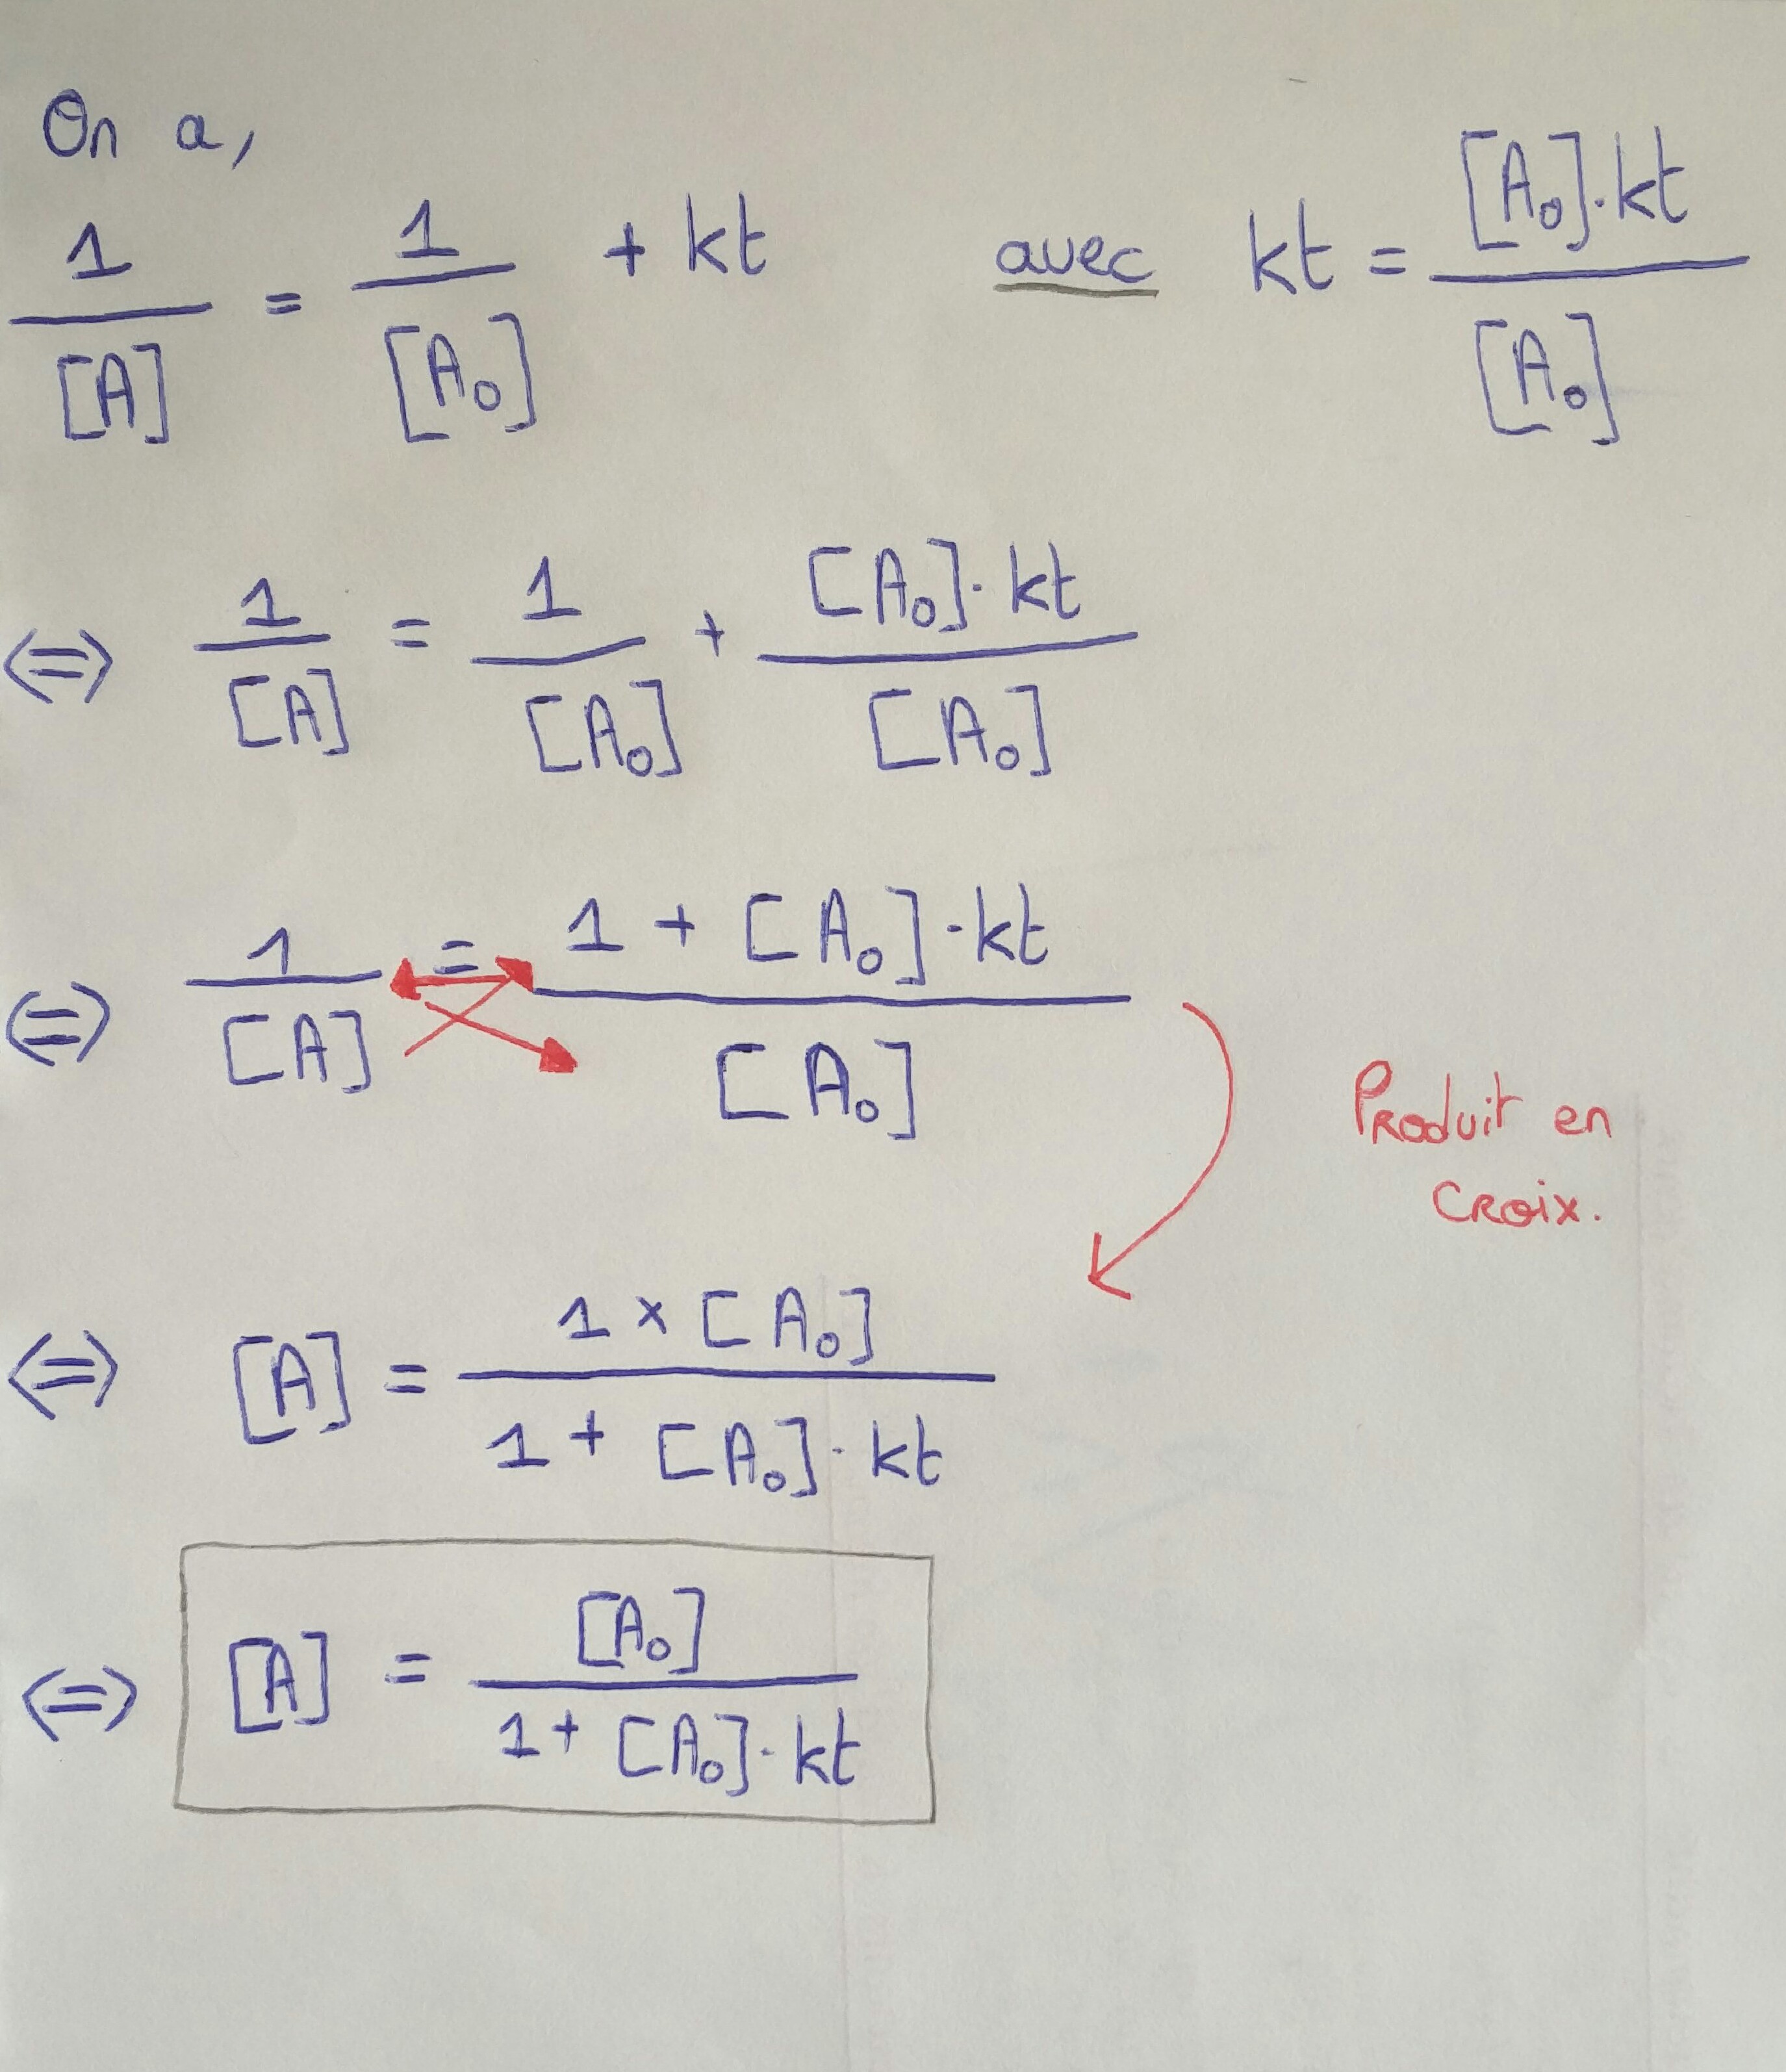 On a,
1/[A] = 1/[A₀] + kt avec kt = [A₀]·kt/[A₀]
⇔ 1/[A] = 1/[A₀] + [A₀]·kt/[A₀]
⇔ 1/[A] = (1 + [A₀]·kt)/[A₀]
Produit en
croix.
⇔ [A] = (1 × [A₀])/(1 + [A₀]·kt)
⇔ [A] = [A₀]/(1 + [A₀]·kt)